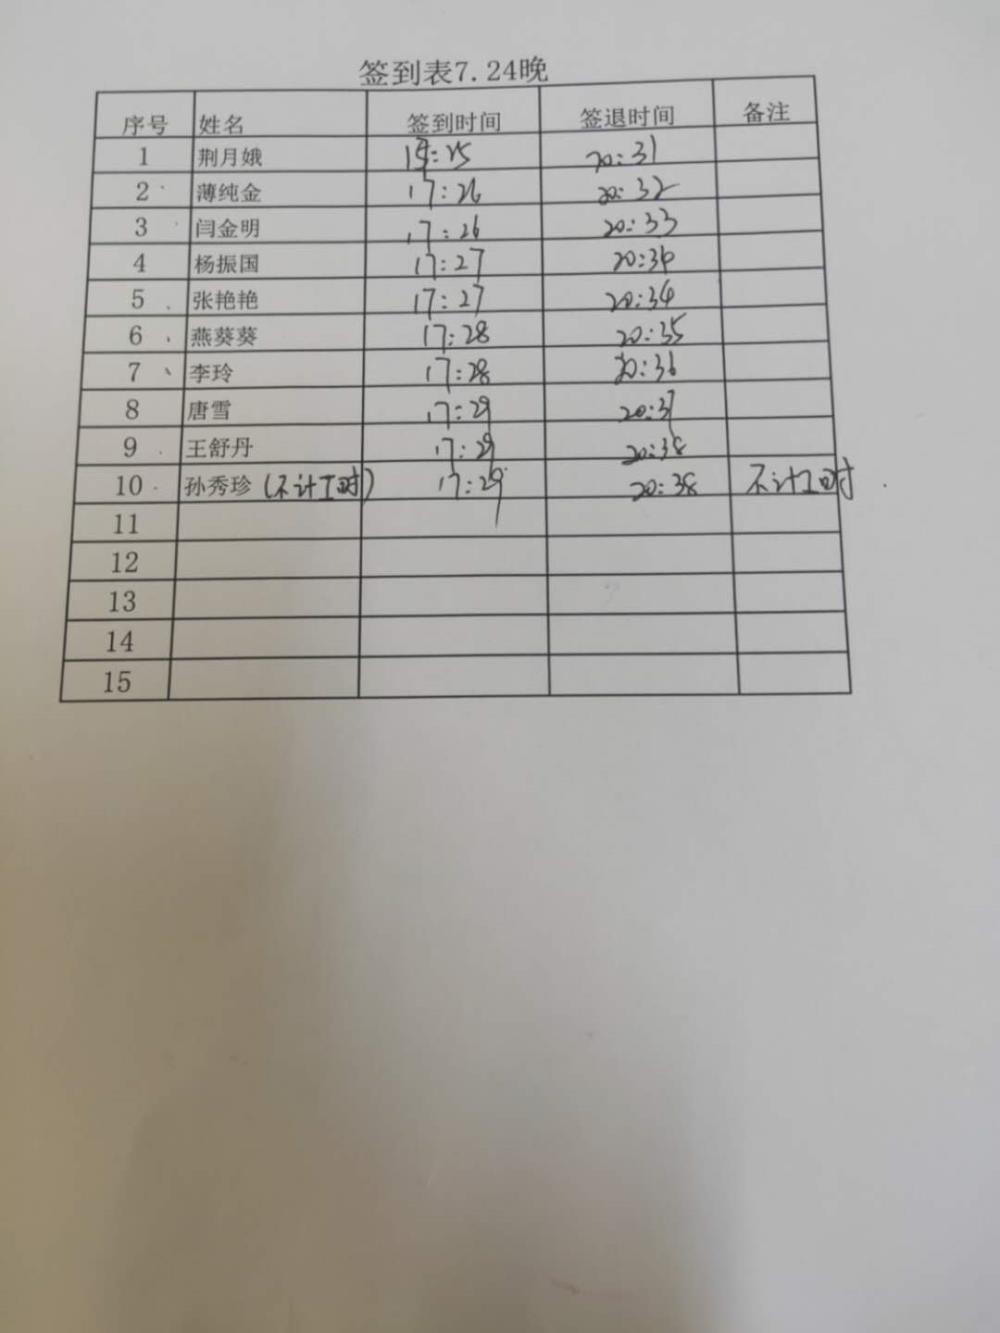 签到表7.24晚
序号 姓名 签到时间 签退时间 备注
1 荆月娥 20:31
2 薄纯金 17:26 20:32
3 闫金明 17:26 20:33
4 杨振国 17:27
5 张艳艳 17:27 20:34
6 燕葵葵 17:28 20:35
7 李玲 17:28 20:36
8 唐雪 17:29 20:37
9 王舒丹 17:29 20:38
10 孙秀珍(不计工时) 17:29 20:38 不计工时
11
12
13
14
15